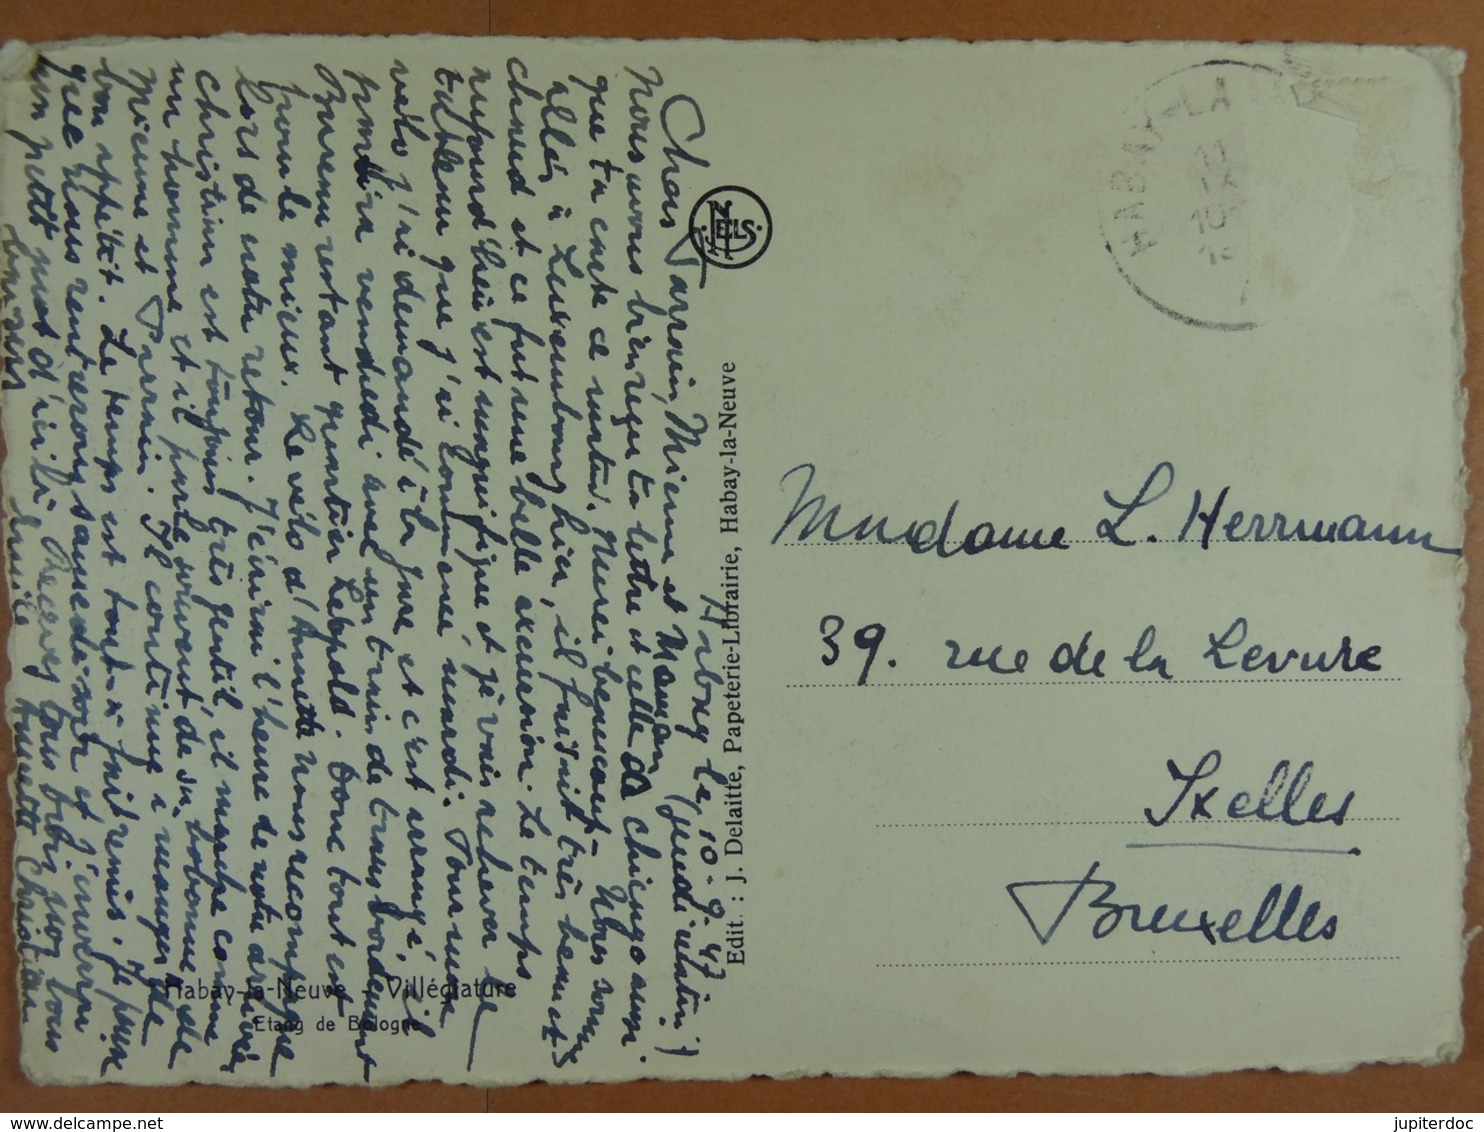 Habay le, 10-9-47
(jeudi matin)
Chers Parrain, Mienne et Maman
Nous avons bien reçu ta lettre et celle de Chicago ainsi
que ta carte ce matin. Merci beaucoup. Nous sommes
allés à Luxembourg hier, il faisait très beau et
chaud et ce fut une belle excursion. Le temps
aujourd'hui est magnifique et je vais achever le
tableau que j'ai commencé mardi. Pour mon
vélo j'ai demandé à la gare et c'est arrangé, il
partira vendredi avec un train de transbordement
Bureau restant quartier Léopold. Donc tout est
pour le mieux. Le vélo d'Annette nous accompagne
lors de notre retour. J'écrirai l'heure de notre arrivée
Christian est toujours très gentil, il marche comme
un homme et il parle souvent de sa bobonne, de
Mienne et Parrain. Il continue à manger de
bon appétit. Le temps est tout à fait remis. Je pense
que nous rentrerons samedi soir et j'enverrai
un petit mot d'ici là. Recevez tous trois nos bons
baisers
Emile Annette Christian
NELS
Edit. : J. Delaitte, Papeterie-Librairie, Habay-la-Neuve
Habay-la-Neuve - Villégiature
Etang de Bologne
HABAY-LA
11
IX
10-
19
Madame L. Herrmann
39. rue de la Levure
Ixelles
Bruxelles
jupiterdoc